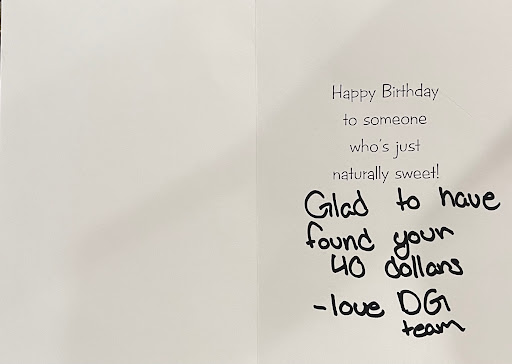 Happy Birthday
to someone
who's just
naturally sweet!
Glad to have
found your
40 dollars
-love DG
team